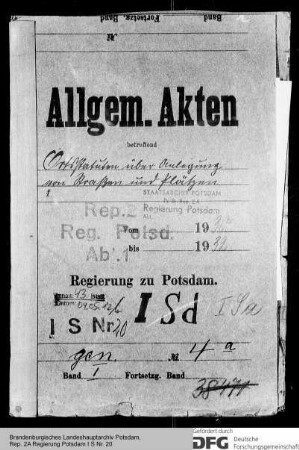 Fortsetzg. Band
Band
№
Allgem. Akten
betreffend
Ortsstatuten über Anlegung
von Straßen und Plätzen
STAATSARCHIV POTSDAM
Pr. Br. Rep. 2A
Regierung Potsdam
Rep. 2
Reg. Potsd.
Abt. I
Vom 19
bis 1932
Regierung zu Potsdam.
I Sd
I Sa
I S Nr. 20
gen. № 4 a
Band I Fortsetzg. Band
Brandenburgisches Landeshauptarchiv Potsdam,
Rep. 2A Regierung Potsdam I S Nr. 20
Gefördert durch
DFG Deutsche
Forschungsgemeinschaft